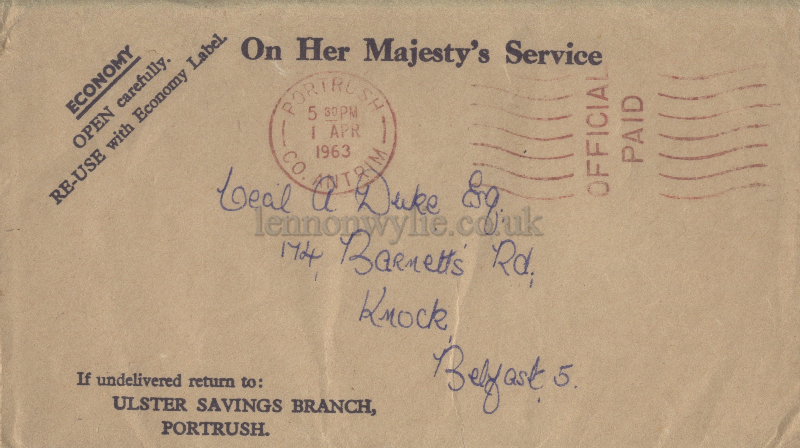 On Her Majesty's Service
ECONOMY
OPEN carefully.
RE-USE with Economy Label.
PORTRUSH
5 30PM
1 APR
1963
CO. ANTRIM
OFFICIAL
PAID
Ceal A Duke Esq.
lennonwylie.co.uk
174, Barnett's Rd,
Knock,
Belfast 5.
If undelivered return to:
ULSTER SAVINGS BRANCH,
PORTRUSH.